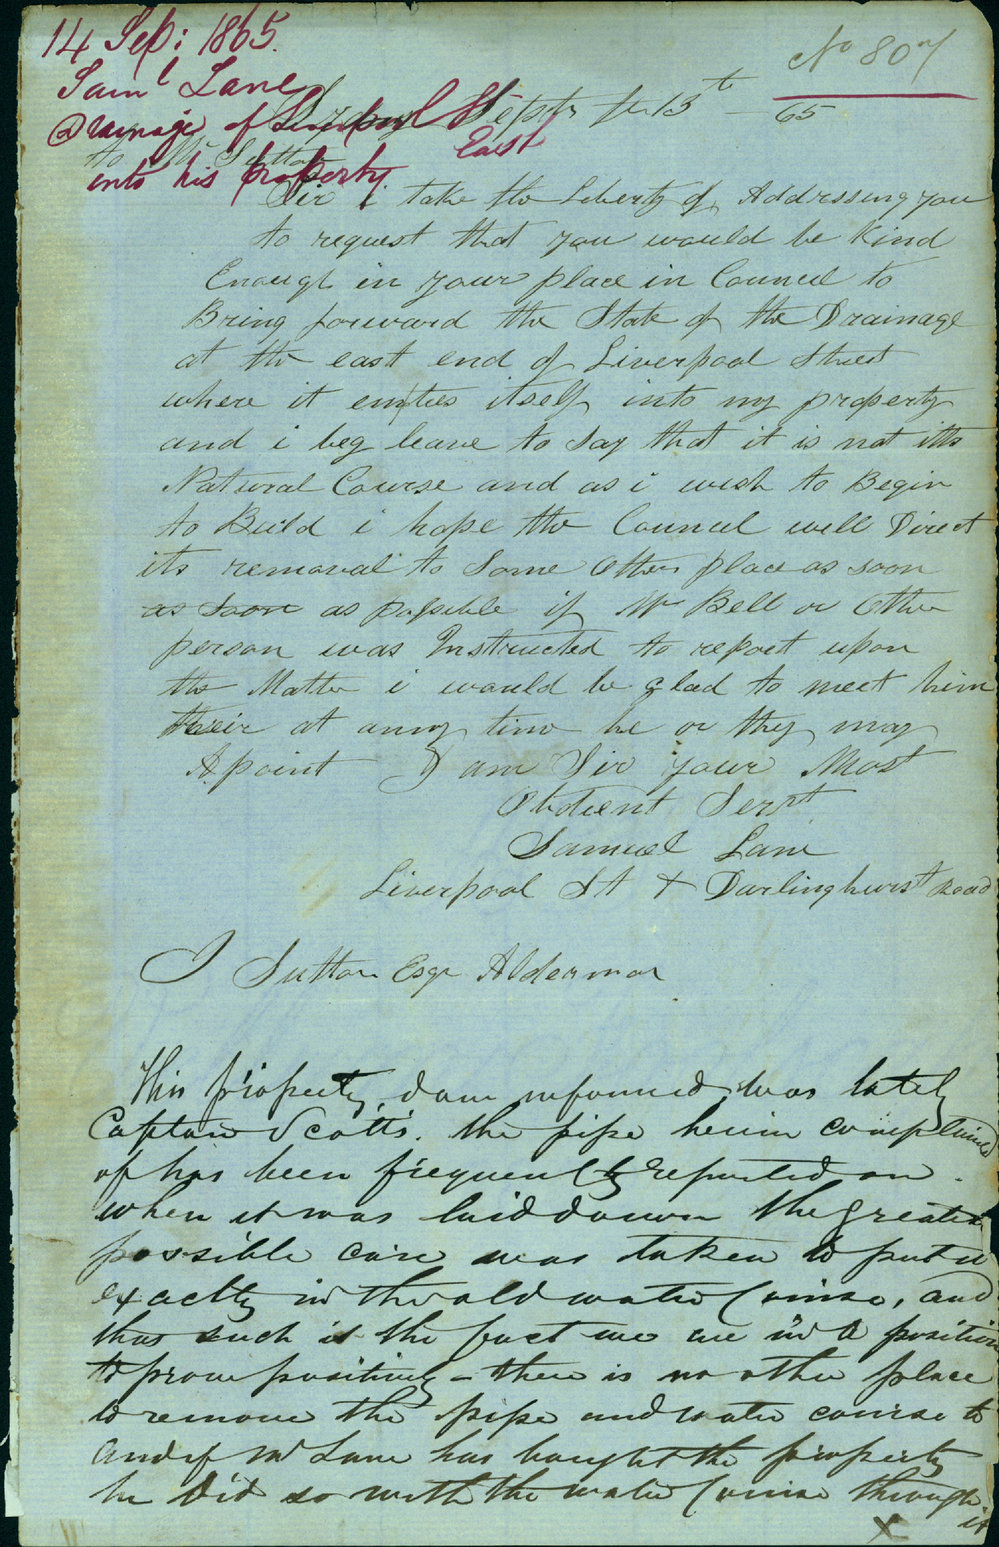 14 Sep: 1865.
No 807
Saml Lane
Drainage of Liverpool St East
into his property.
Sydney Septr the 13th — 65
to Mr Sutton
Sir i take the Liberty of Addressing you
to request that you would be Kind
Enough in your place in Council to
Bring forward the State of the Drainage
at the east end of Liverpool Street
where it empties itself into my property
and i beg leave to Say that it is not itts
Natural Course and as i wish to Begin
to Build i hope the Council will Direct
its removal to Some Other place as soon
as soon as possible if Mr Bell or Other
person was Instructed to report upon
the Matter i would be glad to meet him
their at anny time he or they may
Apoint I am Sir your Most
Obdient Servt
Samuel Lane
Liverpool St & Darlinghurst Road
J Sutton Esqr Alderman
This property, I am informed, was lately
Captain Scotts. the pipe herein complained
of has been frequently reported on.
when it was laid down the greatest
possible care was taken to put it
exactly in the old water Course, and
that such is the fact we are in a position
to prove positively – there is no other place
to remove the pipe and water course to
and if Mr Lane has bought the property
he did so with the water Course through
it
X